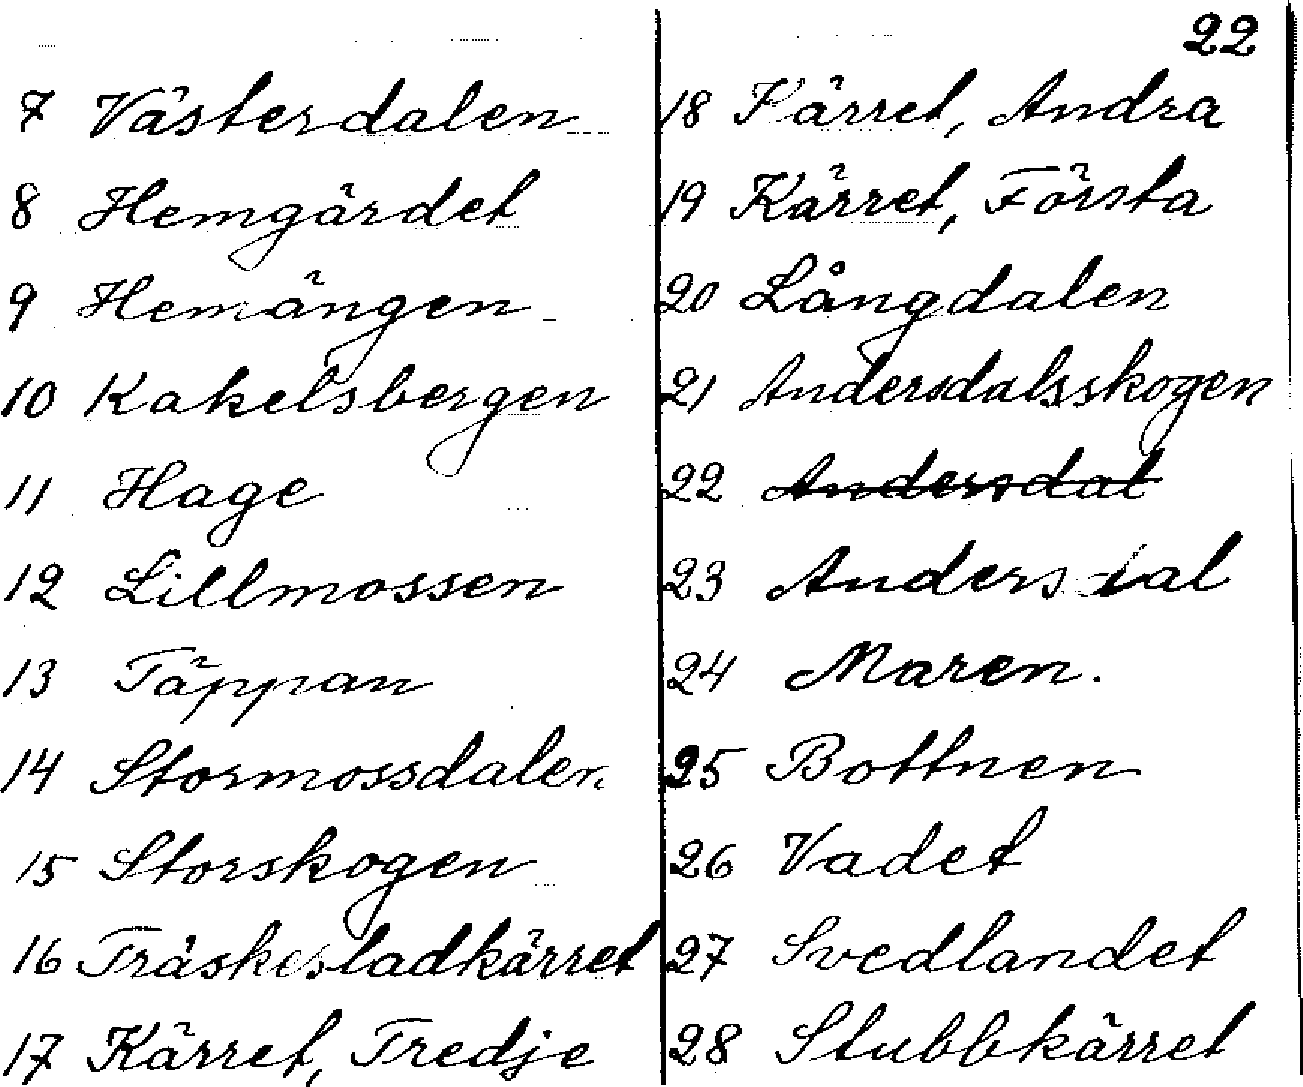 22
7 Västerdalen
8 Hemgärdet
9 Hemängen
10 Kakelsbergen
11 Hage
12 Lillmossen
13 Täppan
14 Stormossdalen
15 Storskogen
16 Träskesladkärret
17 Kärret, Tredje
18 Kärret, Andra
19 Kärret, Första
20 Långdalen
21 Andersdalsskogen
22 Andersdal
23 Andersdal
24 Maren.
25 Bottnen
26 Vadet
27 Svedlandet
28 Stubbkärret